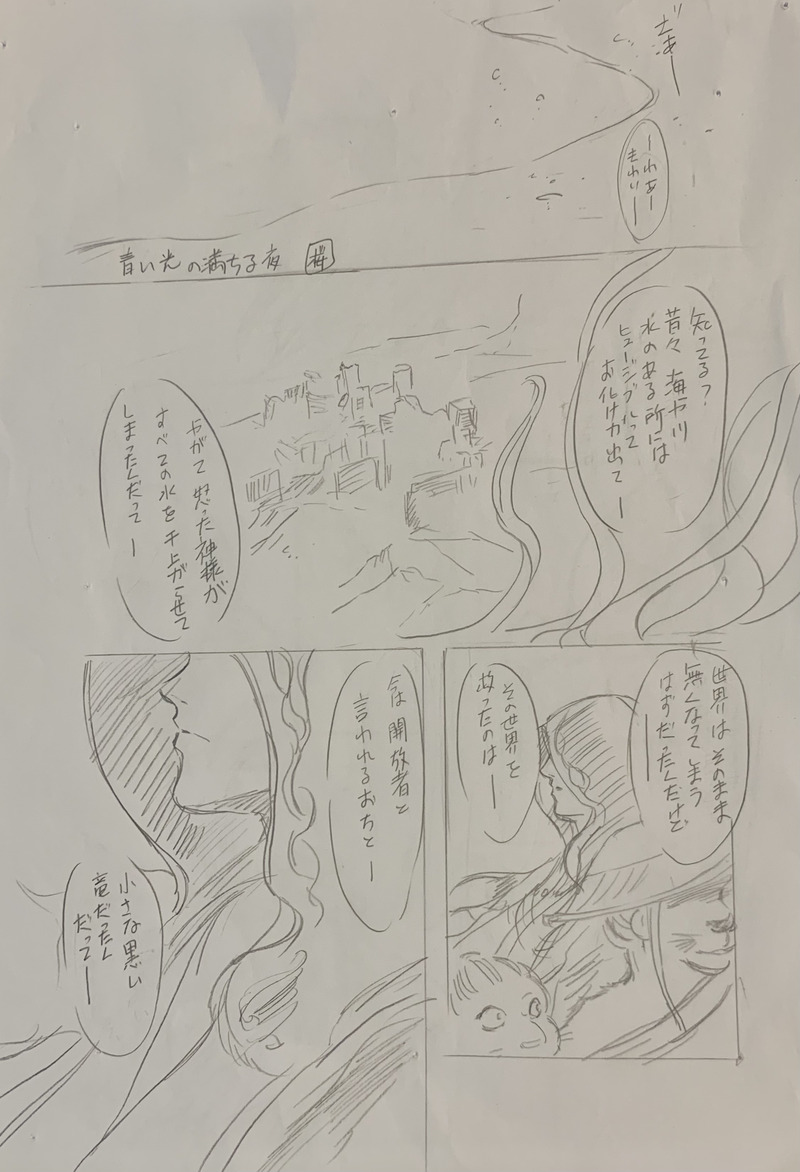 ざあー
ーわあー
きれいー
青い光の満ちる夜
知ってる？
昔々 海や川
水のある所には
ヒュージングルって
お化けが出てー
やがて怒った神様が
すべての水を干上がらせて
しまったんだってー
世界はそのまま
無くなってしまう
はずだったんだけど
ー
その世界を
救ったのはー
今は開放者と
言われるおちとー
小さな黒い
竜だったん
だってー